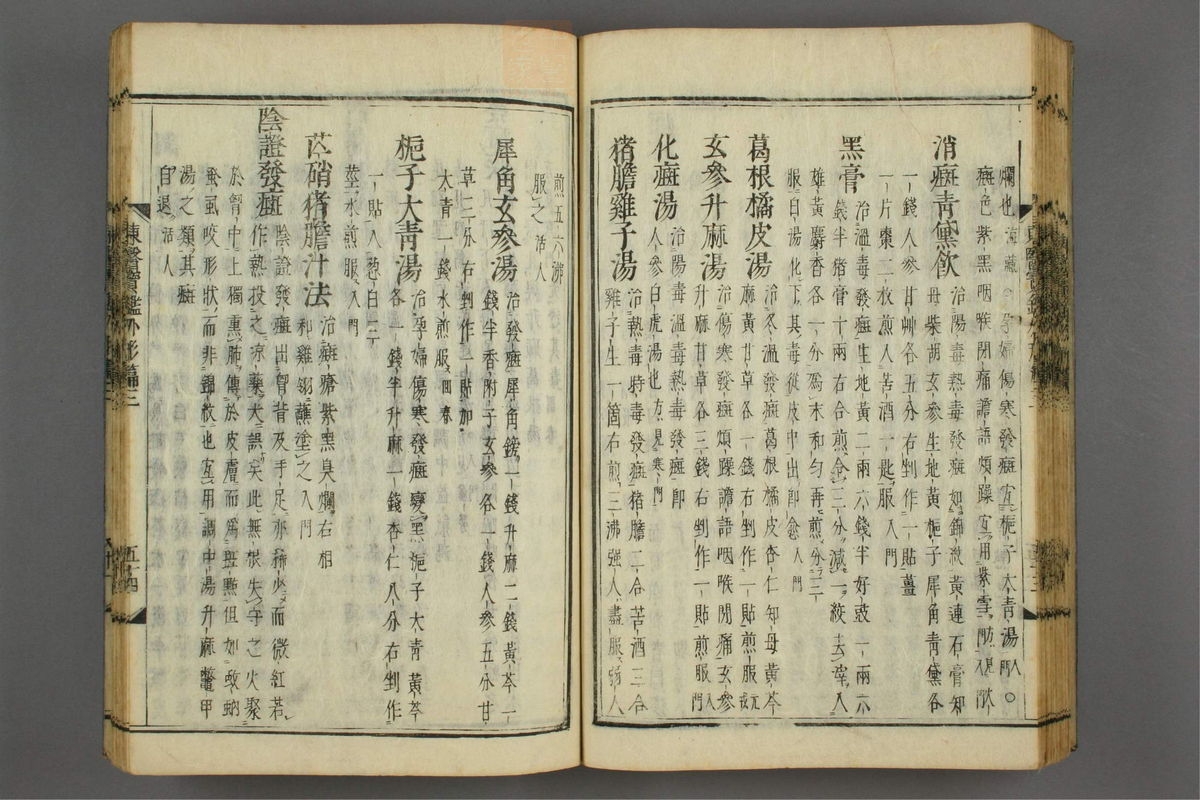 爛也海藏○孕婦傷寒發癍宜梔子大青湯入門○
癍色紫黑咽喉閉痛譫語煩躁宜用紫雪
消癍青黛飮 治陽毒熱毒發癍如錦紋黃連石膏知
母柴胡玄參生地黃梔子犀角青黛各
一錢人參甘艸各五分右剉作一貼薑
一片棗二枚煎入苦酒一匙服入門
黑膏 治溫毒發癍生地黃二兩六錢半好豉一兩六
錢半猪膏十兩右合煎令三分減一絞去滓入
雄黃麝香各一分爲末和勻再煎分三
服白湯化下其毒從皮中出卽愈入門
葛根橘皮湯 治冬溫發癍葛根橘皮杏仁知母黃芩
麻黃甘草各一錢右剉作一貼煎服
玄參升麻湯 治傷寒發癍煩躁譫語咽喉閉痛玄參
升麻甘草各三錢右剉作一貼煎服入門
化癍湯 治陽毒溫毒熱毒發癍卽
人參白虎湯也方見寒門
猪膽雞子湯 治熱毒時毒發癍猪膽二合苦酒三合
雞子生一箇右煎三沸强人盡服弱人
煎五六沸
服之活人
犀角玄參湯 治發癍犀角鎊一錢升麻二錢黃芩一
錢半香附子玄參各一錢人參五分甘
草二分右剉作一貼加
大青一錢水煎服回春
梔子大青湯 治孕婦傷寒發癍變黑梔子大青黃芩
各一錢半升麻一錢杏仁八分右剉作
一貼入葱白三
莖水煎服入門
芒硝猪膽汁法 治癍瘡紫黑臭爛右相
和雞翎蘸塗之入門
陰證發癍 陰證發癍出胸背及手足亦稀少而微紅若
作熱投之凉藥大誤矣此無根失守之火聚
於胸中上獨熏肺傳於皮膚而爲斑點但如蚊蚋
蚤虱咬形狀而非錦紋也宜用調中湯升麻鱉甲
湯之類其癍
自退活人
東醫寶鑑外形篇三
五十四